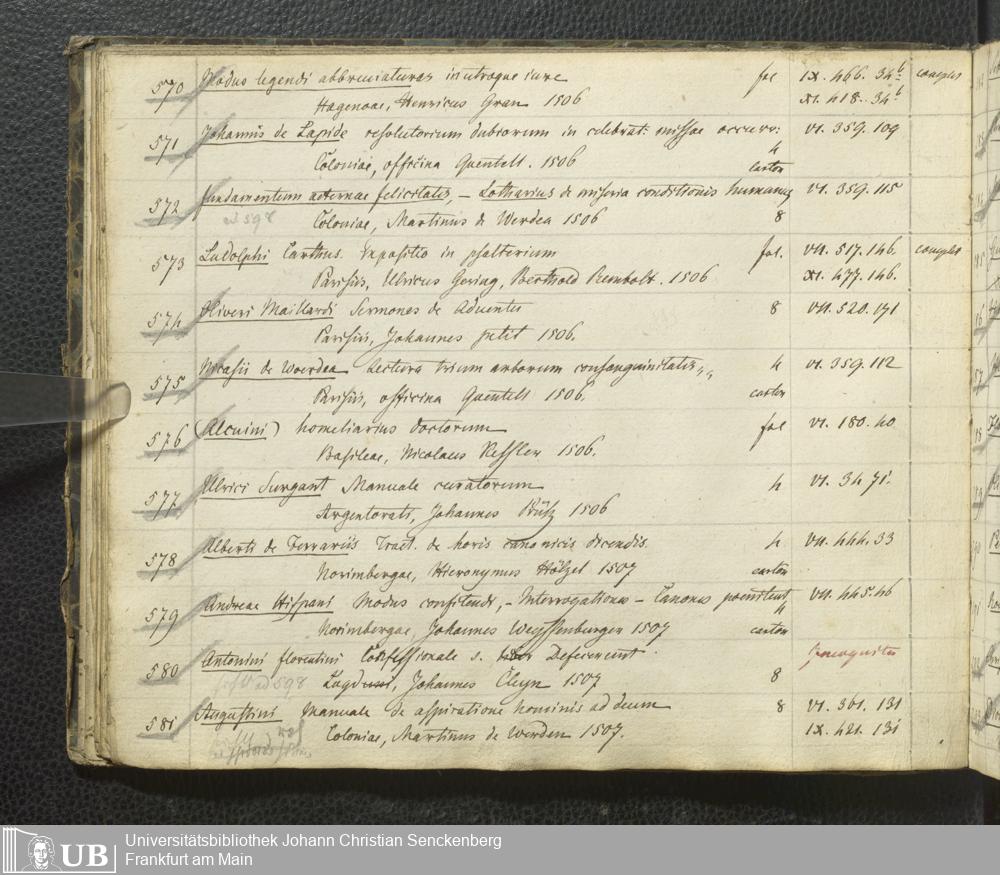 570 Modus legendi abbreviaturas in utroque iure fol IX. 466. 34b complet
Hagenoae, Henricus Gran 1506 XI. 418. 34b
571 Johannis de Lapide resolutorium dubiorum in celebrat: missae occurr: 4 VI. 359. 109
Coloniae, officina Quentell. 1506 carton
572 fundamentum aeternae felicitatis, – Lotharius de miseria conditionis humanae VI. 359. 115
ad 598 Coloniae, Martinus de Werdea 1506 8
573 Ludolphi Carthus. Expositio in psalterium fol. VII. 517. 146. complet
Parisiis, Ulricus Gering, Berthold Rembolt. 1506 XI. 477. 146.
574 Oliveri Maillardi Sermones de adventu 8 VII. 520. 171
Parisiis, Johannes petit 1506.
575 Nicasii de Woerdea Lectura trium arborum consanguinitatis,, 4 VI. 359. 112
Parisiis, officina Quentell 1506. carton
576 (Alcuini) homeliarius doctorum fol VI. 180. 40
Basileae, Nicolaus Kessler 1506.
577 Ulrici Surgant Manuale curatorum 4 VI. 34. 71.
Argentorati, Johannes Prüß 1506
578 Alberti de Ferrariis Tract. de horis canonicis dicendis. 4. VII. 444. 33
Norimbergae, Hieronymus Hölzel 1507 carton
579 Andreae Hispani Modus confitendi, – Interrogationes – Canones poenitent 4 VII. 445. 46
Norimbergae, Johannes Weyssenburger 1507 carton
580 Antonini florentini Confessionale s. Defecerunt
ad 598 Lugduni, Johannes Cleyn 1507 8
581 Augustini Manuale de aspiratione hominis ad deum 8 VI. 361. 131
Coloniae, Martinus de Werden 1507. IX. 421. 131
UB Universitätsbibliothek Johann Christian Senckenberg
Frankfurt am Main